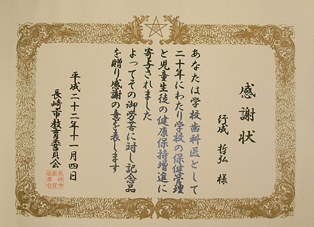 感謝状
行成 哲弘 様
あなたは学校歯科医として
二十年にわたり学校の保健管理
と児童生徒の健康保持増進に
寄与されました
よってその御労苦に対し記念品
を贈り感謝の意を表します
平成二十二年十一月四日
長崎市教育委員会